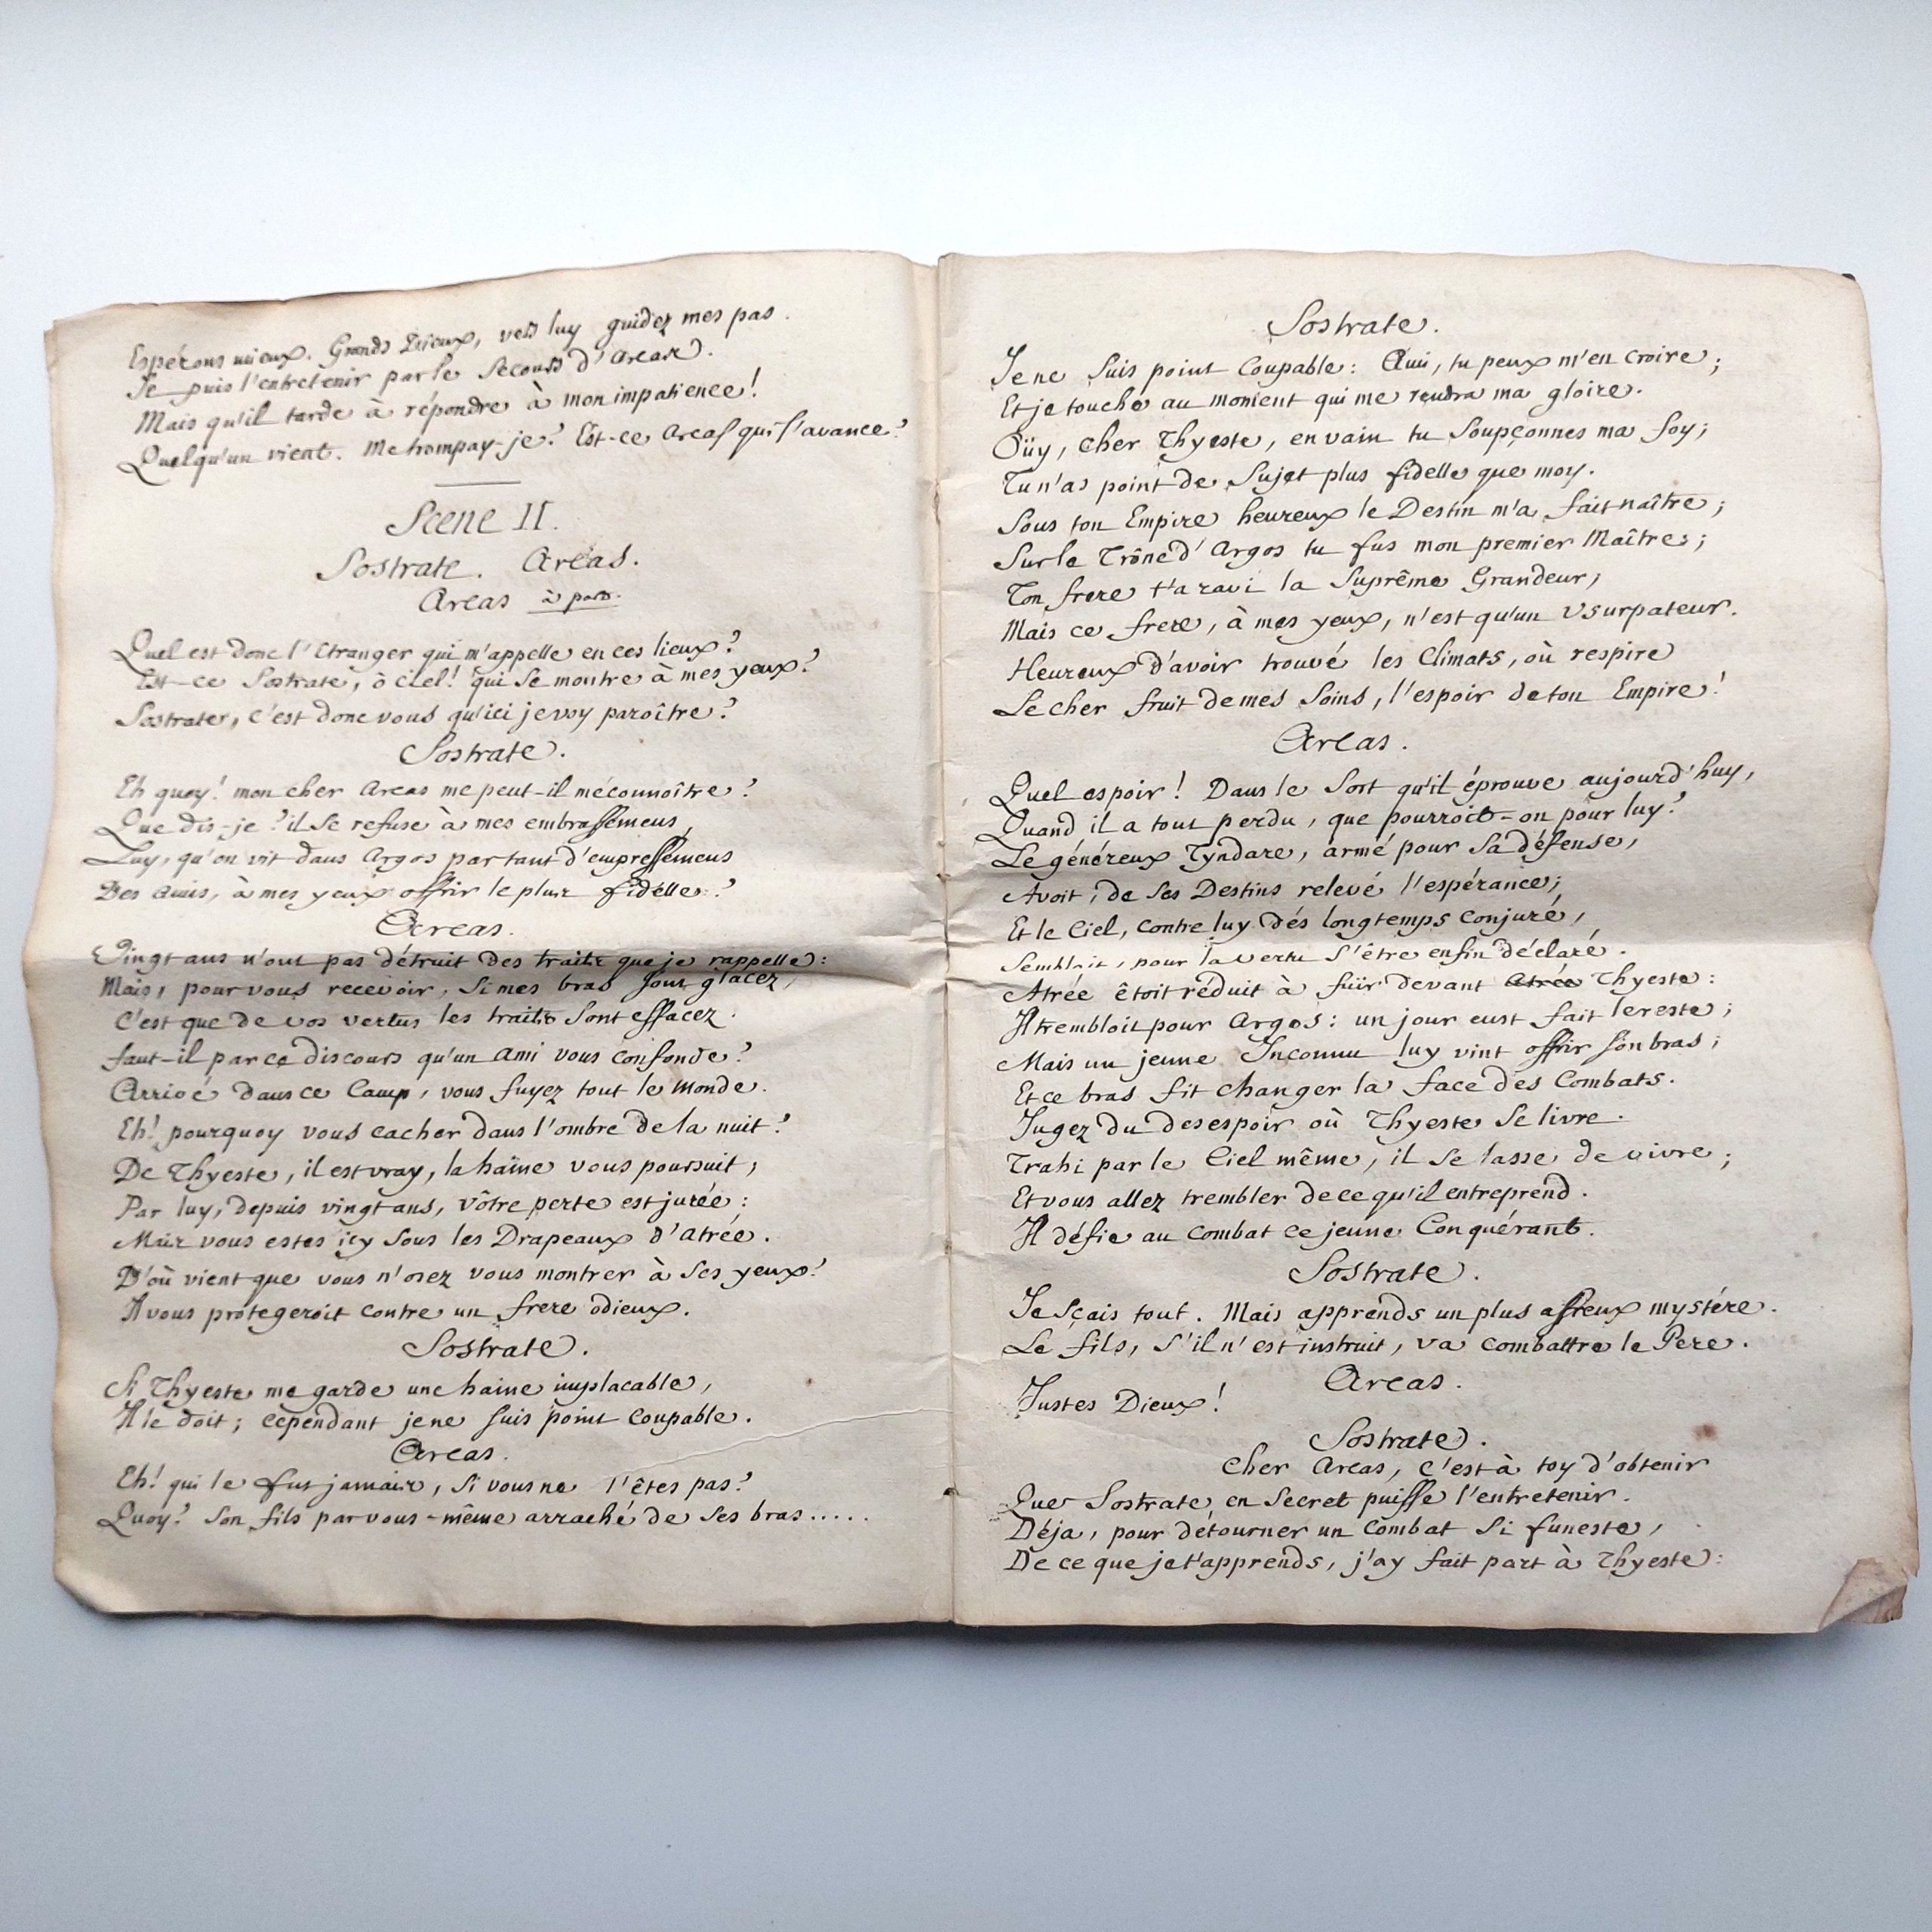 Espérons mieux. Grands Dieux, vers luy guidez mes pas.
Je puis l'entretenir par le Secours d'Arcas.
Mais qu'il tarde à répondre à mon impatience!
Quelqu'un vient. Me trompay-je? Est-ce Arcas qui s'avance?
Scene II.
Sostrate. Arcas.
Arcas à part.
Quel est donc l'Etranger qui m'appelle en ces lieux?
Est-ce Sostrate, ô Ciel! qui Se montre à mes yeux?
Sostrate, c'est donc vous qu'ici je voy paroître?
Sostrate.
Eh quoy! mon cher Arcas me peut-il méconnoître?
Que dis-je? il Se refuse à mes embrassemens,
Luy, qu'on vit dans Argos par tant d'empressemens
Des amis, à mes yeux offrir le plus fidelle?
Arcas.
Vingt ans n'ont pas détruit des traits que je rappelle:
Mais, pour vous recevoir, Si mes bras Sont glacez,
C'est que de vos vertus les traits Sont effacez.
faut-il par ce discours qu'un ami vous confonde?
Arrivé dans ce Camp, vous fuyez tout le monde.
Eh! pourquoy vous cacher dans l'ombre de la nuit?
De Thyeste, il est vray, la haîne vous poursuit,
Par luy, depuis vingt ans, vôtre perte est jurée:
Mais vous estes icy Sous les Drapeaux d'Atrée.
D'où vient que vous n'osez vous montrer à Ses yeux?
Il vous protegeroit contre un frere odieux.
Sostrate.
Si Thyeste me garde une haine implacable,
Il le doit; cependant je ne Suis point Coupable.
Arcas.
Eh! qui le fut jamais, Si vous ne l'êtes pas?
Quoy? Son fils par vous-même arraché de Ses bras.....
Sostrate.
Je ne Suis point Coupable: Ami, tu peux m'en croire;
Et je touche au moment qui me rendra ma gloire.
Oüy, Cher Thyeste, en vain tu Soupçonnes ma foy;
Tu n'as point de Sujet plus fidelle que moy.
Sous ton Empire heureux le Destin m'a fait naître;
Sur le Trône d'Argos tu fus mon premier Maître;
Ton frere t'a ravi la Suprême Grandeur;
Mais ce frere, à mes yeux, n'est qu'un Usurpateur.
Heureux d'avoir trouvé les Climats, où respire
Le cher fruit de mes Soins, l'espoir de ton Empire!
Arcas.
Quel espoir! Dans le Sort qu'il éprouve aujourd'huy,
Quand il a tout perdu, que pourroit-on pour luy?
Le généreux Tyndare, armé pour Sa défense,
Avoit, de Ses Destins relevé l'espérance;
Et le Ciel, contre luy dés longtemps conjuré,
Sembloit, pour la vertu S'être enfin déclaré.
Atrée êtoit réduit à füir devant Atrée Thyeste:
Il trembloit pour Argos: un jour eust fait le reste;
Mais un jeune Inconnu luy vint offrir Son bras;
Et ce bras fit changer la face des Combats.
Jugez du desespoir où Thyeste Se livre.
Trahi par le Ciel même, il Se lasse de vivre;
Et vous allez trembler de ce qu'il entreprend.
Il défie au combat ce jeune Conquérant.
Sostrate.
Je Sçais tout. Mais apprends un plus affreux mystére.
Le fils, S'il n'est instruit, va combattre le Pere.
Arcas.
Justes Dieux!
Sostrate.
Cher Arcas, C'est à toy d'obtenir
Que Sostrate en Secret puisse l'entretenir.
Déja, pour détourner un Combat Si funeste,
De ce que je t'apprends, j'ay fait part à Thyeste: